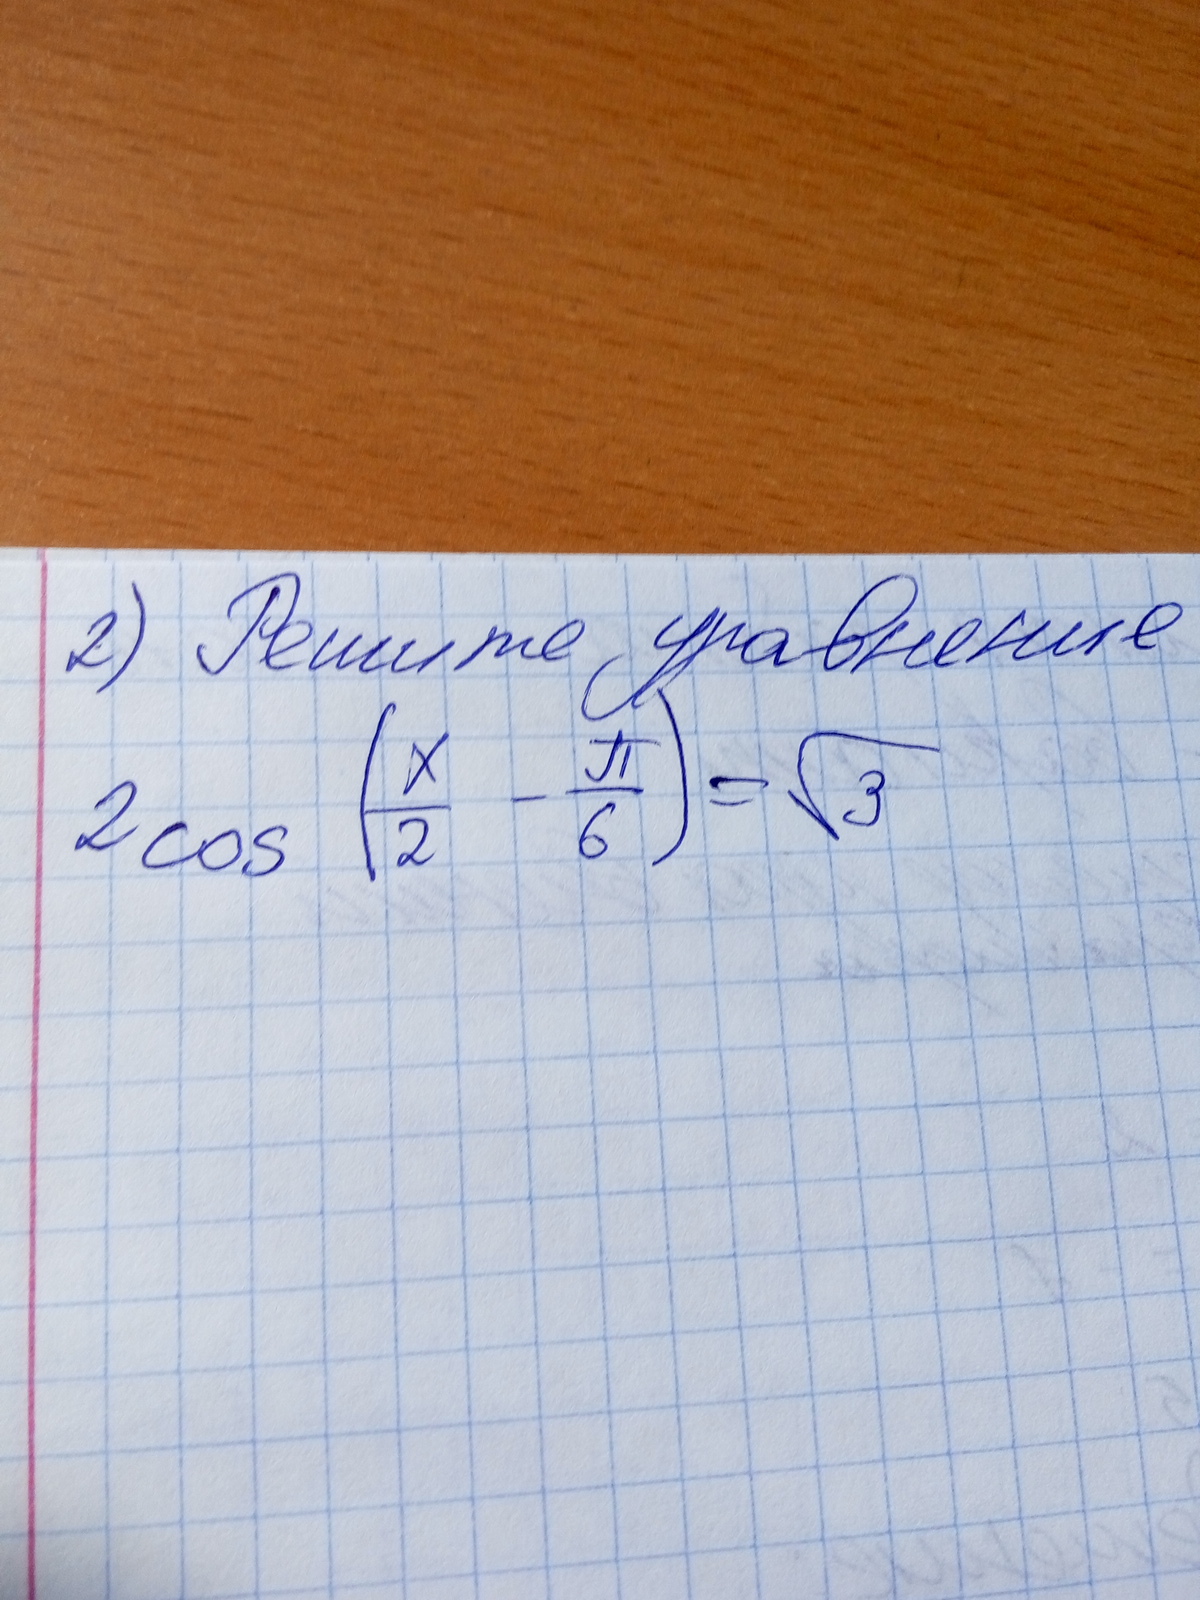 2) Решите уравнение
2cos (x/2 - π/6) = √3